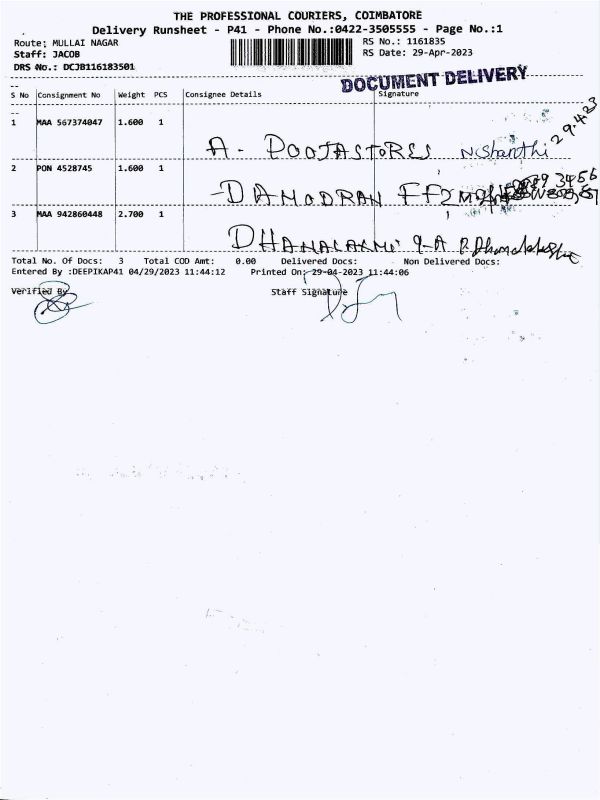 THE PROFESSIONAL COURIERS, COIMBATORE
Delivery Runsheet - P41 - Phone No.:0422-3505555 - Page No.:1
Route: MULLAI NAGAR
Staff: JACOB
DRS No.: DCJB116183501
RS No.: 1161835
RS Date: 29-Apr-2023
DOCUMENT DELIVERY
S No Consignment No Weight PCS Consignee Details Signature
1 MAA 567374047 1.600 1
A - POOJASTORES N.Sharthi 29.4.23
2 PON 4528745 1.600 1
DAMODRAN FF2
3 MAA 942860448 2.700 1
DHANALAXMI 9-A
Total No. Of Docs: 3 Total COD Amt: 0.00 Delivered Docs: Non Delivered Docs:
Entered By :DEEPIKAP41 04/29/2023 11:44:12 Printed On: 29-04-2023 11:44:06
Verified By Staff Signature